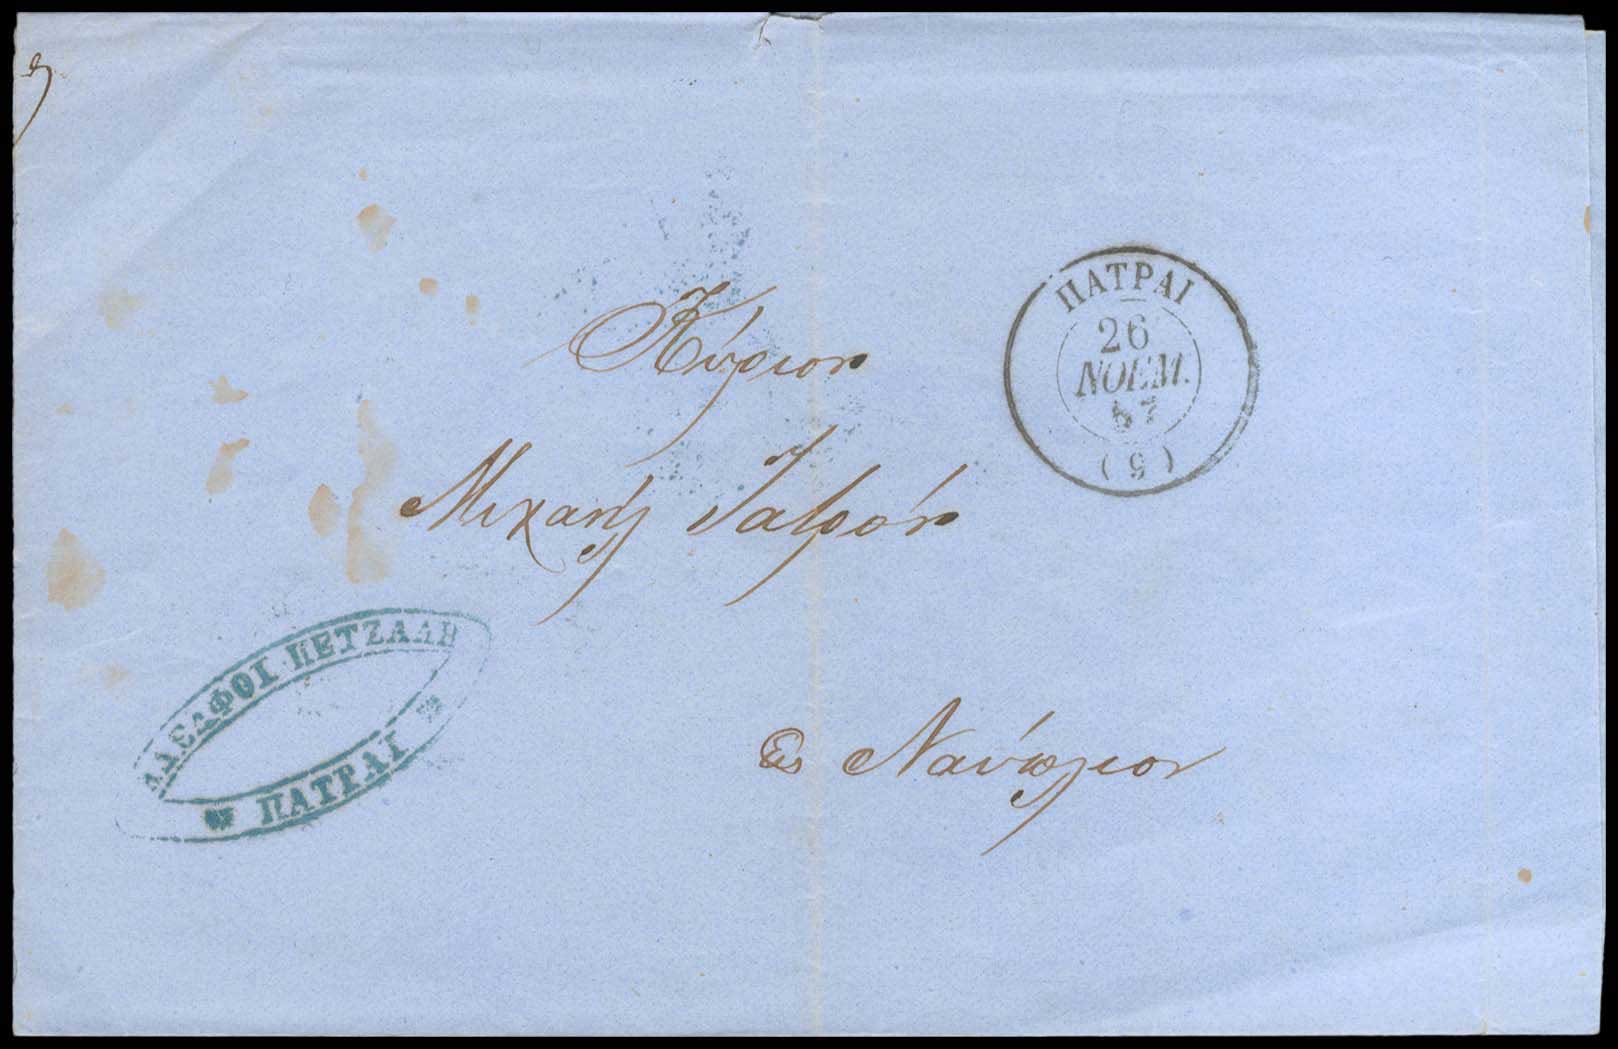 ΠΑΤΡΑΙ
26
ΝΟΕΜ.
57
(9)
Κύριον
Μιχαήλ Ἰατρόν
Εἰς Ναύπλιον
ΑΔΕΛΦΟΙ ΠΕΤΖΑΛΗ
ΠΑΤΡΑΙ